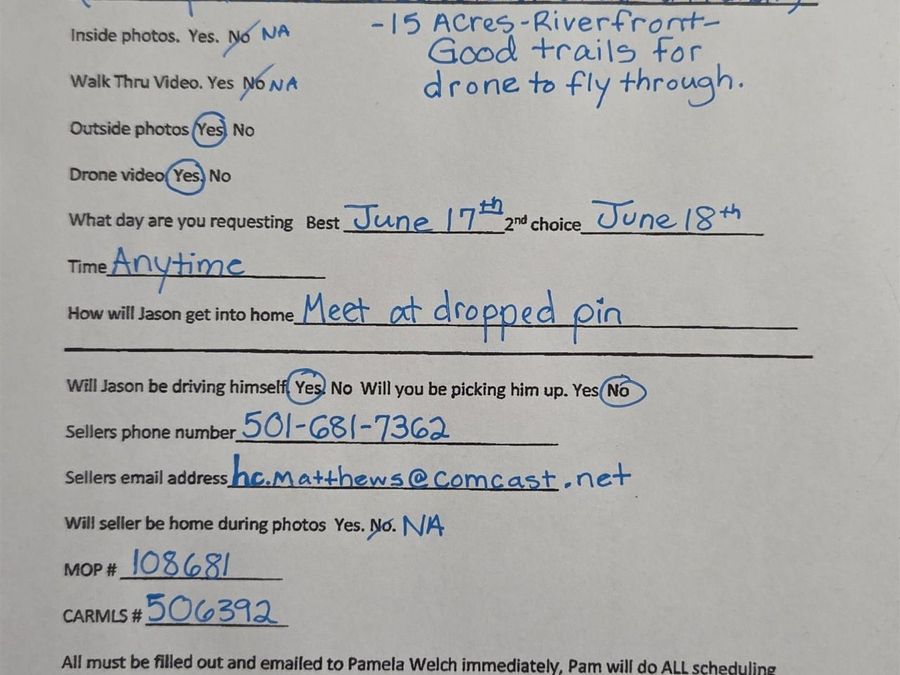 Inside photos. Yes. No NA
-15 Acres-Riverfront-
Good trails for
drone to fly through.
Walk Thru Video. Yes No NA
Outside photos Yes. No
Drone video Yes. No
What day are you requesting Best June 17th 2nd choice June 18th
Time Anytime
How will Jason get into home Meet at dropped pin
Will Jason be driving himself Yes. No Will you be picking him up. Yes No
Sellers phone number 501-681-7362
Sellers email address hc.matthews@comcast.net
Will seller be home during photos Yes. No. NA
MOP # 108681
CARMLS # 506392
All must be filled out and emailed to Pamela Welch immediately, Pam will do ALL scheduling